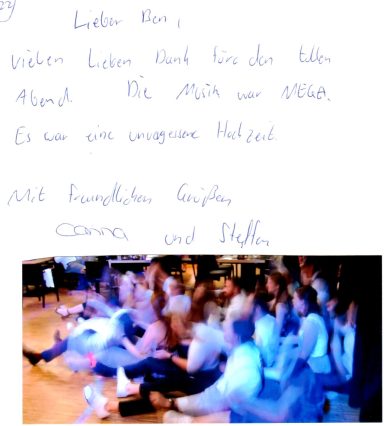 Lieber Ben,
vielen Lieben Dank für den tollen
Abend. Die Musik war MEGA.
Es war eine unvergessene Hochzeit.
Mit freundlichen Grüßen
und Steffen